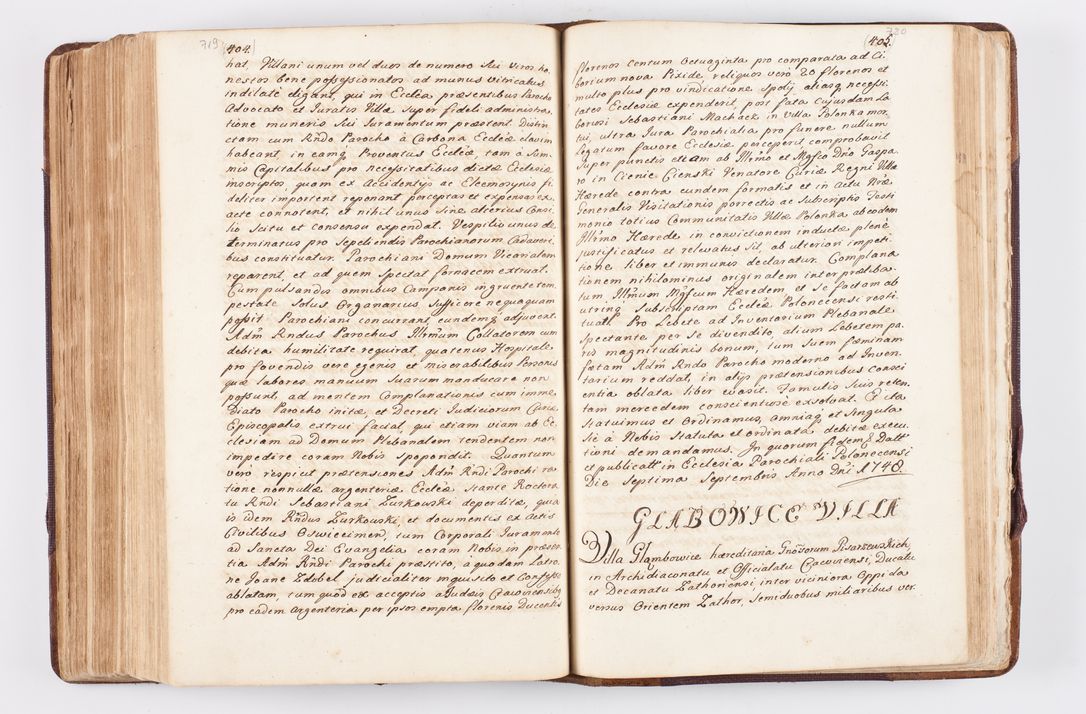 719
404.
hat. Villani unum vel duos de numero sui viros ho,
nestos bene possessionatos ad munus vitricatus
indilate eligant, qui in Ecclia præsentibus Parocho
Advocato et Juratis Villæ super fideli administra,
tione muneris sui Iuramentum præstent. Distin
ctam cum Rndo Parocho à Carbona Eccliæ clavim
habeant, in eamq Proventus Eccliæ, tam à sum
mis Capitalibus pro necessitatibus dictæ Ecclesiæ
inscriptos, quam ex Accidentys ac Eleemosynis fi
deliter importent reponant perceptas et expensas ex,
acte connotent, et nihil unus sine alterius Consi
lio scitu et consensu expendat. Vespilio unus de
terminatus pro sepeliendis Parochianorum Cadaveri
bus constituatur. Parochiani Domum Vicarialem
reparent, et ad quem spectat fornacem extruat.
Cum pulsandis omnibus Campanis ingruente tem
pestate solus Organarius sufficere nequaquam
possit Parochiani concurrant, eundemq adjuvent.
Adm Rndus Parochus Illrmum Collatorem cum
debita humilitate requirat, quatenus Hospitale
pro fovendis vere egenis et miserabilibus Personis
quæ labores manuum suarum manducare non
possunt, ad mentem Complanationis cum imme
diato Parocho initæ, et Decreti Iudiciorum Curiæ
Episcopalis extrui faciat, qui etiam viam ab Ec
clesiam ad Domum Plebanalem tendentem non
impedire coram Nobis spopondit. Quantum
vero respicit prætensiones Adm Rndi Parochi ra
tione nonnullæ argenteriæ Eccliæ stante Rectora
tu Rndi Sebastiani Zurkowski deperditæ, quia
is idem Rndus Zurkowski, et documentis ex Actis
Civilibus Oswiecimen, tum Corporali Iuramento
ad Sancta Dei Evangelia coram Nobis in præsen
tia Adm Rndi Parochi præstito, a quodam Latro
ne Joane Zdobel judicialiter inquisito et Confesso
ablatam, tum quod ex acceptis a Judæis Cracoviensibq
pro eadem argenteria per ipsos empta florenis Ducentis
720
405.
florenos centum octuaginta pro comparata ad Ci
borium nova Pixide, reliquos verò 20 florenos et
multo plus pro vindicatione spoly, aliasq necessi
tates Ecclesiæ expenderit, post fata cujusdam La
boriosi Sebastiani Machack in villa Polonka mor
tui, ultra Iura Parochialia pro funere nullum
Legatum favore Ecclesiæ perceperit, comprobavit
super punctis etiam ab Illrmo et Mgfco Dno Gaspa
ro in Cienie Cienski Venatore Curiæ Regni Villæ
Hærede contra eundem formatis et in Actu Nræ
Generalis Visitationis porrectis ac subscriptis Testi
monio totius Communitatis Villæ Polonka ab eodem
Illrmo Hærede in convictionem inductæ plenè
justificatus et relevatus sit, ab ulteriori impeti
tione liber et immunis declaratur. Complana
tionem nihilominus originalem inter præliba
tum Illrmum Mgfcum Hæredem et se factam ab
utrinq subscriptam Eccliæ Polonecensi resti
tuat. Pro Lebete ad Inventarium Plebanale
spectante per se divendito, alium Lebetem pa
ris magnitudinis bonum, tum suem fæminam
fætam Adm Rndo Parocho moderno ad Inven
tarium reddat, in alys prætensionibus Consci
entia oblata liber evasit. Famulis suis reten
tam mercedem conscientiosè exsolvat. Et ita
statuimus et Ordinamus, omniaq et singula
sic à Nobis statuta et ordinata debitæ execu
tioni demandamus. In quorum fidem Datt
et publicatt in Ecclesia Parochiali Polonecensi
Die Septima Septembris Anno Dni 1748.
GLABOWICE VILLA
Villa Glambowice hæreditaria Gnosorum Pisarzewskich
in Archidiaconatu et Officialatu Cracoviensi, Ducatu
et Decanatu Zathoriensi inter viciniora Oppida
versus Orientem Zathor, semiduobus miliaribus ver.